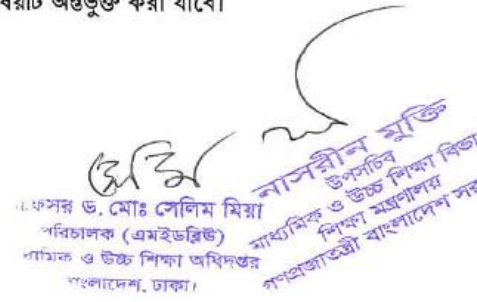 অন্তর্ভুক্ত করা যাবে।
সেলিম
ড. মোঃ সেলিম মিয়া
পরিচালক (এমইডব্লিউ)
ও উচ্চ শিক্ষা অধিদপ্তর
বাংলাদেশ, ঢাকা।
নাসরীন মুক্তি
উপসচিব
মাধ্যমিক ও উচ্চ শিক্ষা
শিক্ষা মন্ত্রণালয়
গণপ্রজাতন্ত্রী বাংলাদেশ